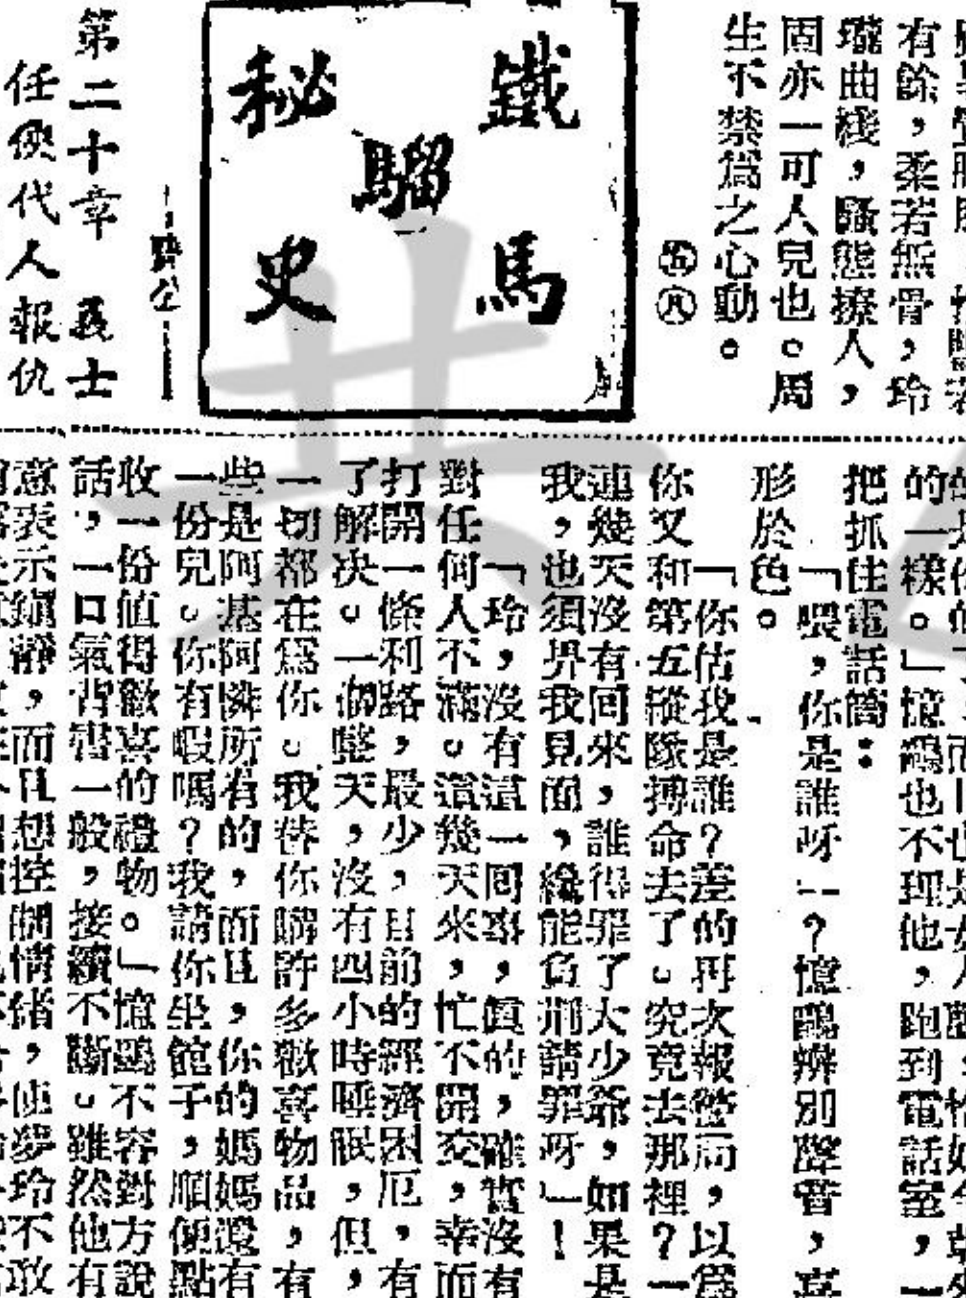 有餘，柔若無骨，玲
瓏曲棧，騷態撩人，
固亦一可人兒也。周
生不禁爲之心動。
五八
鐵馬
騮
秘史
第二十章 義士
任俠代人報仇
的一樣。」憶鷗也不理他，跑到電話室，一
把抓住電話筒：
「喂，你是誰呀——？憶鷗辨別聲音，喜
形於色。
「你估我是誰？差的再次報營而，以爲
你又和第五縱隊搏命去了。究竟去那裡？一
連幾天沒有回來，誰得罪了大少爺，如果是
我，也須畀我見面，纔能負荆請罪呀」！
「玲，沒有這一回事，真的，確實沒有
對任何人不滿。這幾天來，忙不開交，幸而
打開一條利路，最少，目前的經濟困厄，有
了解决。一個整天，沒有四小時睡眠，但，
一切都在爲你。我替你購許多歡喜物品，有
些是阿基阿憐所有的，而且，你的媽媽還有
一份兒。你有暇嗎？我請你坐館子，順便點
收一份值得歡喜的禮物。」憶鷗不容對方說
話，一口氣背書一般，接續不斷。雖然他有
意表示鎮靜，而且想控制情緒，使夢玲不敢